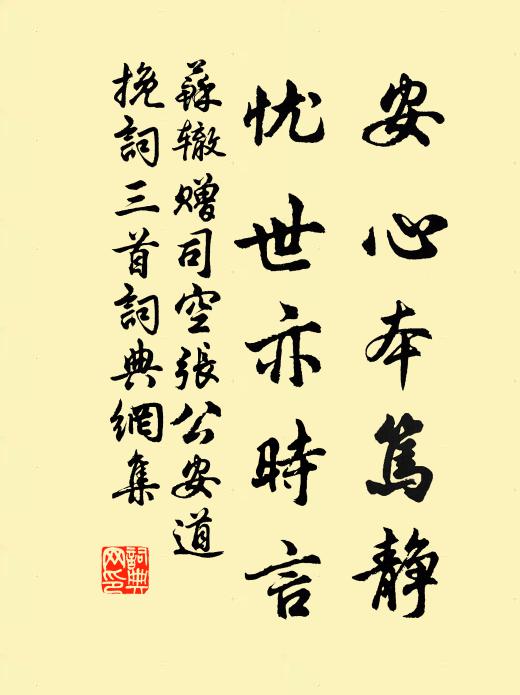 安心本篤静
忧世亦時言
蘇辙赠司空張公安道
挽詞三首詞典網集
詞典
网印